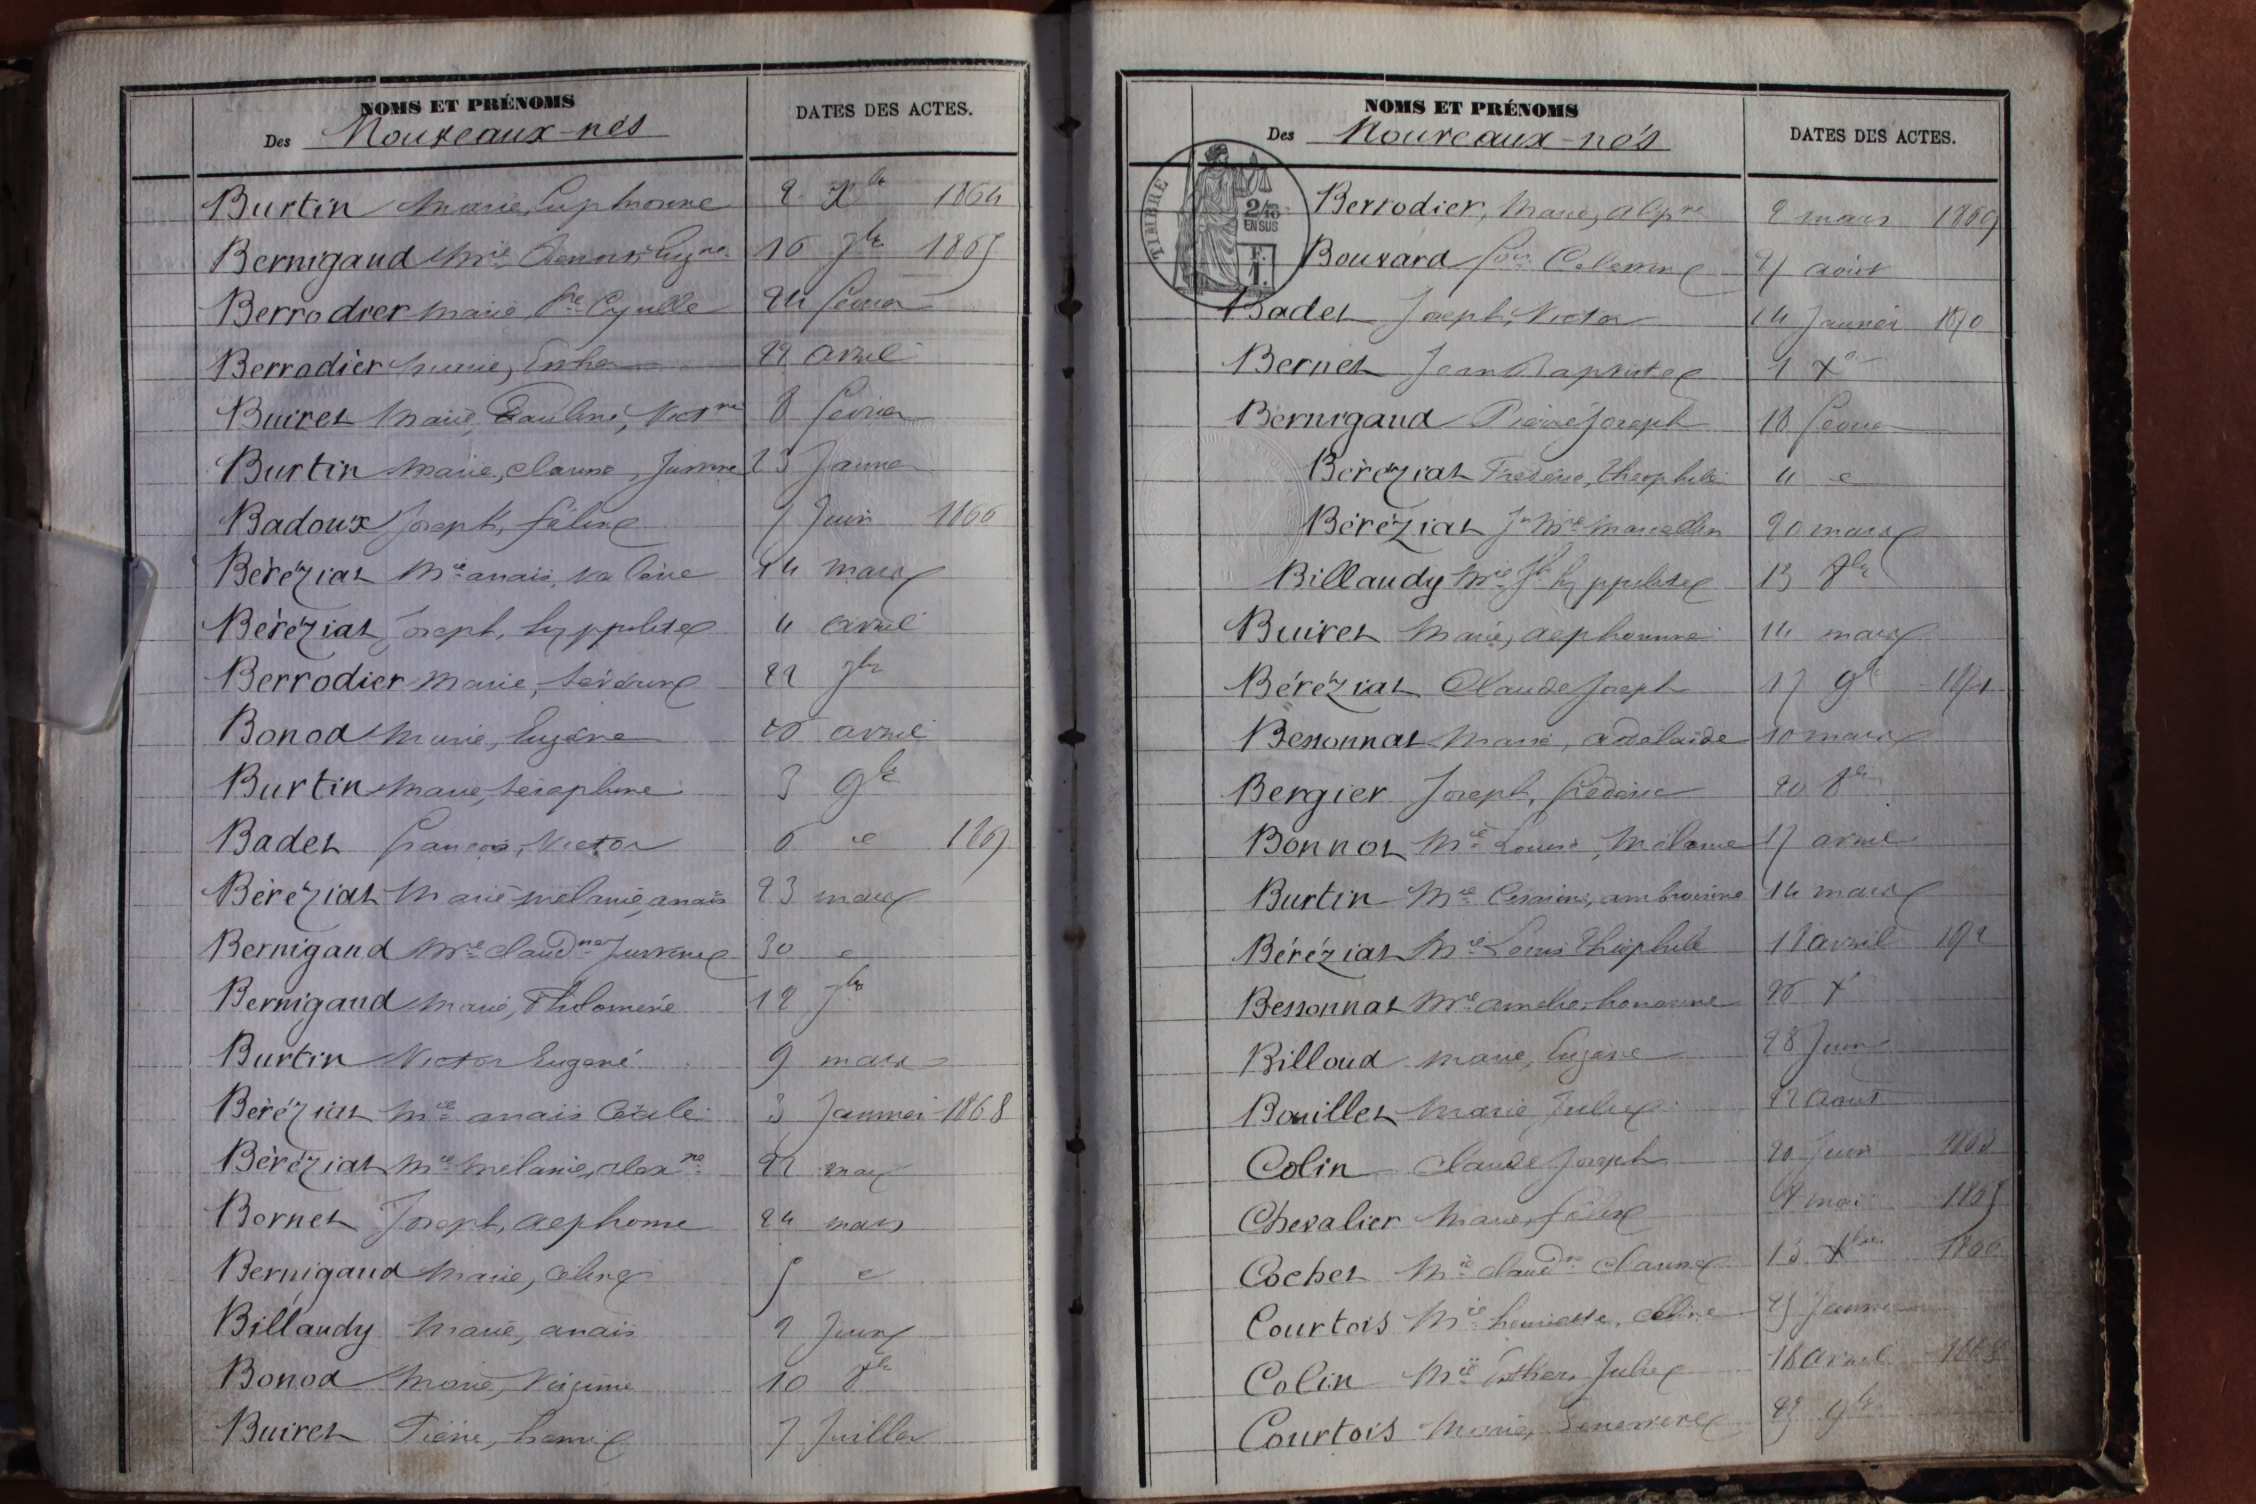 NOMS ET PRÉNOMS
Des Nouveaux-nés
DATES DES ACTES.
Burtin Marie, Euphrosine 2 Xbre 1864
Bernigaud Mrie 16 7bre 1865
Berrodier Marie, Cyrille 24 février
Berrodier Marie, Esther 22 avril
Buiret Marie, Pauline, Victne 8 février
Burtin Marie, Justine 23 Janvier
Badoux Joseph, félix 7 Juin 1866
Béréziat Mie anaïs, valérie 14 mars
Béréziat Joseph, hyppolite 4 avril
Berrodier Marie, Séverine 22 7bre
Bonod Marie, Eugénie avril
Burtin Marie, Séraphine 3 9bre
Badet françois, Victor 6 1867
Béréziat Marie mélanie, anaïs 23 mars
Bernigaud Mie claudne Justine 30
Bernigaud Marie, Philomène 12 7bre
Burtin Victor Eugène 9 mars
Béréziat Mie anaïs Cécile 3 Janvier 1868
Béréziat Mie Mélanie, alexne 22 mai
Bornet Joseph, alphonse 24 mars
Bernigaud Marie, céline 5
Billaudy Marie, anaïs 2 Juin
Bonod Marie, Virginie 10 8bre
Buiret Pierre, henri 7 Juillet
NOMS ET PRÉNOMS
Des Nouveaux-nés
DATES DES ACTES.
TIMBRE
2/10
EN SUS
F.
1.
Berrodier, Marie, 2 mars 1869
Bouvard août
Badet Joseph, Victor 14 Janvier 1870
Bernet Jean Baptiste 1 Xbre
Bernigaud Pierre Joseph 18 février
Béréziat Frédéric, théophile 4
Béréziat Jn Mie Marcellin 20 mars
Billaudy Mie Jh hyppolite 13 8bre
Buiret Marie, alphonsine 14 mars
Béréziat Claude Joseph 17 9bre 1871
Bessonnat Marie, adélaïde 10 mars
Bergier Joseph, frédéric 20 8bre
Bonnot Mie Louise, Mélanie 17 avril
Burtin Mie Césarine, ambroisine 14 mars
Béréziat Mie Louis Théophile avril
Bessonnat Mie amélie, honorine 26 Xbre
Billoud Marie, Eugénie 28 Juin
Bouillet Marie Julie 22 août
Colin Claude Joseph 20 Juin 1863
Chevalier Marie, félix mai 1865
Cochet Mie claudne 13 Xbre 1866
Courtois Mie henriette, céline 25 Janvier
Colin Mie Esther, Julie 18 avril 1868
Courtois Marie, 9bre